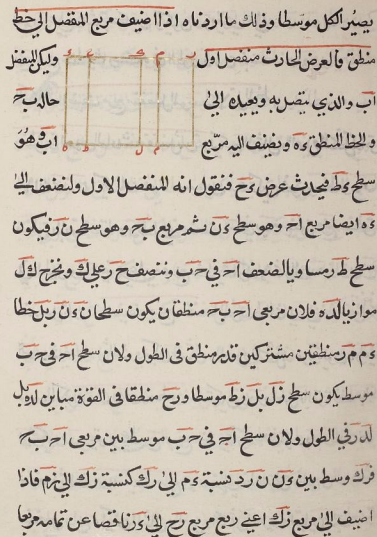 يصير الكل موسطا وذلك ما اردناه اذا اضيف مربع المنفصل الى خط
منطق فالعرض الحادث منفصل اول وليكن المنفصل
اب والذى يتصل به ويعيده الى حاله بح
والخط المنطق ءه ونضيف اليه مربع اب وهو
سطح ءط فيحدث عرض ءح فنقول انه المنفصل الاول ولنضف الى
ءه ايضا مربع اح وهو سطح ءن ثم مربع بح وهو سطح ن ر فيكون
سطح ط ر مساويا لضعف اح فى ح ب وننصف ح ر على ك ونخرج ك ل
موازيا لده فلان مربعى اح بح منطقان يكون سطحا ءن ن ر بل خطا
ءم م ر منطقين مشتركين قدر منطق فى الطول ولان سطح اح فى ح ب
موسط يكون سطح زل بل زط موسطا و رح منطقا فى القوة مباين لده بل
لدر فى الطول ولان سطح اح فى ح ب موسط بين مربعى اح بح
فرك وسط بين ءن ن ر د كنسبة ءم الى رك كنسبة زك الى زم فاذا
اضيف الى مربع زك اعنى ربع مربع رح الى ءر ناقصا عن تمامه مربعا